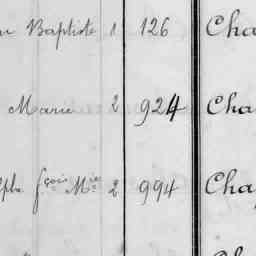 Baptiste 1 126 Cha
Marie 2 924 Cha
fçois Mie 2 994 Cha